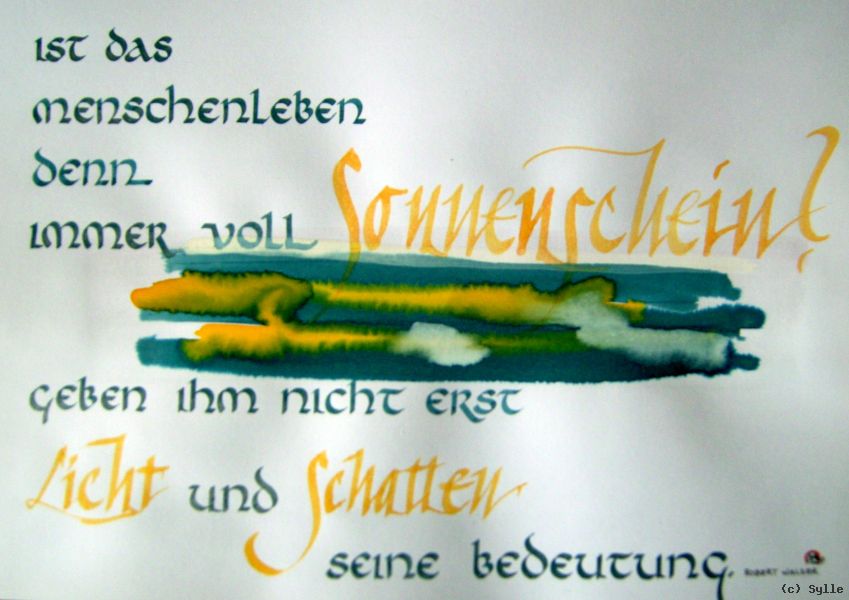 ist das
menschenleben
denn
immer voll Sonnenschein?
geben ihm nicht erst
Licht und Schatten
seine bedeutung.
ROBERT WALSER
(c) Sylle